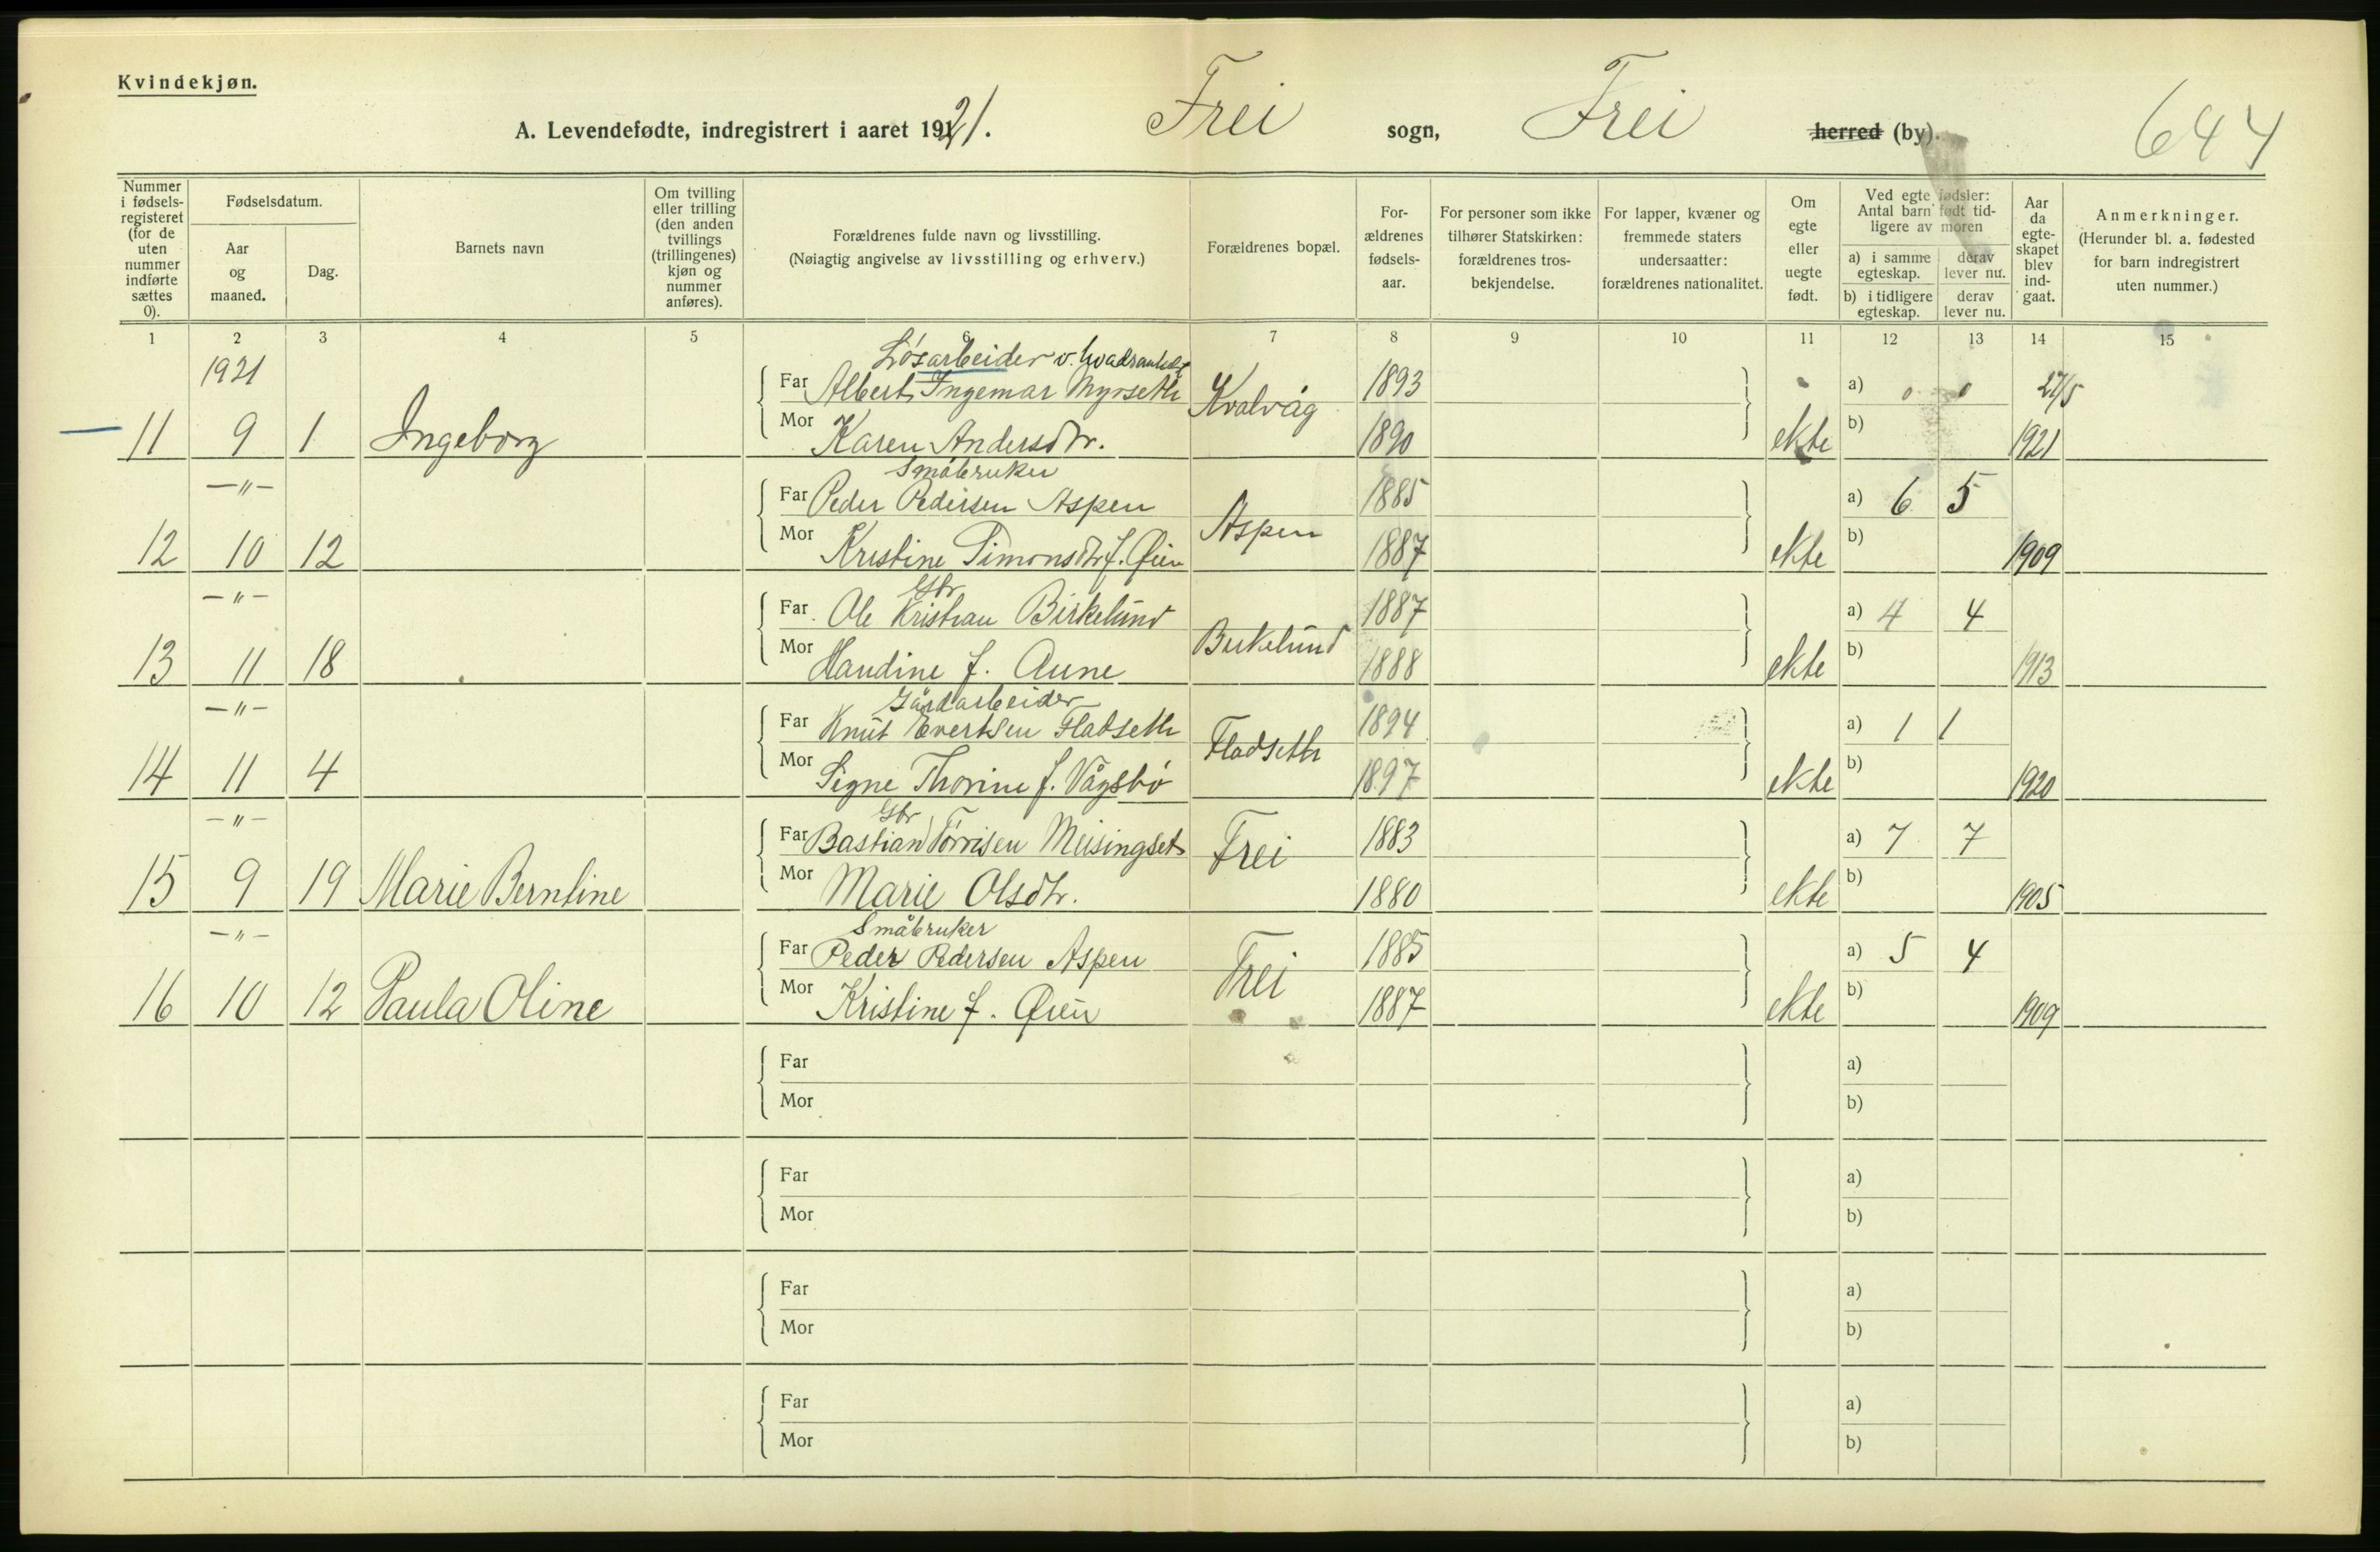 Kvindekjøn.
A. Levendefødte, indregistrert i aaret 1921. Frei sogn, Frei herred (by). 644
Nummer i fødselsregisteret (for de uten nummer indførte sættes 0).
Fødselsdatum.
Aar og maaned.
Dag.
Barnets navn
Om tvilling eller trilling (den anden tvillings (trillingenes) kjøn og nummer anføres).
Forældrenes fulde navn og livsstilling.
(Nøiagtig angivelse av livsstilling og erhverv.)
Forældrenes bopæl.
For-ældrenes fødsels-aar.
For personer som ikke tilhører Statskirken: forældrenes tros-bekjendelse.
For lapper, kvæner og fremmede staters undersaatter: forældrenes nationalitet.
Om egte eller uegte født.
Ved egte fødsler: Antal barn født tid-ligere av moren
a) i samme egteskap.
derav lever nu.
b) i tidligere egteskap.
derav lever nu.
Aar da egte-skapet blev ind-gaat.
Anmerkninger.
(Herunder bl. a. fødested for barn indregistrert uten nummer.)
1 2 3 4 5 6 7 8 9 10 11 12 13 14 15
1921 Løsarbeider v.
Far Albert Ingemar Myrseth Kvalvåg 1893 a) 0 0 27/5
11 9 1 Ingeborg Mor Karen Andersdtr. 1890 ekte b) 1921
—"— Småbruker
Far Peder Pedersen Aspen Aspen 1885 a) 6 5
12 10 12 Mor Kristine Simonsdtr f. Øien 1887 ekte b) 1909
—"— Gbr
Far Ole Kristian Birkelund Birkelund 1887 a) 4 4
13 11 18 Mor Haudine f. Aune 1888 ekte b) 1913
—"— Gårdarbeider
Far Knut Evertsen Fladseth Fladseth 1894 a) 1 1
14 11 4 Mor Signe Thorine f. Vågsbø 1897 ekte b) 1920
—"— Gbr
Far Bastian Tørrisen Meisingset Frei 1883 a) 7 7
15 9 19 Marie Berntine Mor Marie Olsdtr. 1880 ekte b) 1905
—"— Småbruker
Far Peder Pedersen Aspen Frei 1885 a) 5 4
16 10 12 Paula Oline Mor Kristine f. Øien 1887 ekte b) 1909
Far a)
Mor b)
Far a)
Mor b)
Far a)
Mor b)
Far a)
Mor b)